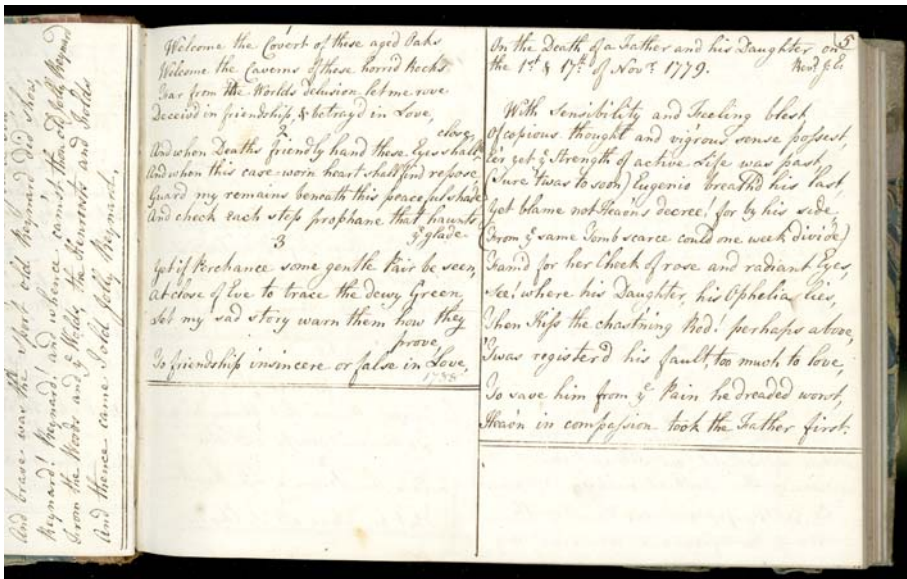 And brave was the Sport old Reynard did shew,
Reynard! Reynard! and whence cam'st thou old Jolly Reynard
From the Woods and yᵉ Welds, the Henroosts and Folds
And thence came I old Jolly Reynard.
Welcome the Covert of these aged Oaks
Welcome the Caverns of these horrid Rocks
Far from the Worlds delusion let me rove
Deceiv'd in friendship, & betray'd in Love,
2
close,
And when Deaths friendly hand these Eyes shall
And when this care-worn heart shall find repose
Guard my remains beneath this peaceful shade
And check each step prophane that haunts
yᵉ glade
3
Yet if Perchance some gentle Pair be seen,
At close of Eve to trace the dewy Green,
Let my sad story warn them how they
prove,
To friendship insincere or false in Love,
1788
5
On the Death of a Father and his Daughter on
the 1st & 17th of Novr 1779.
Revd J: E:
With sensibility and Feeling blest,
Of copious thought and vig'rous sense possest,
E'er yet yᵉ Strength of active Life was past,
(Sure 'twas to soon) Eugenio breath'd his last,
Yet blame not Heav'ns decree! for by his side,
(From yᵉ same Tomb scarce could one week divide)
Fam'd for her Cheek of rose and radiant Eyes,
See! where his Daughter, his Ophelia lies,
Then Kiss the chast'ning Rod! perhaps above,
'Twas register'd his fault, too much to love,
To save him from yᵉ Pain he dreaded worst,
Heav'n in compassion took the Father first.